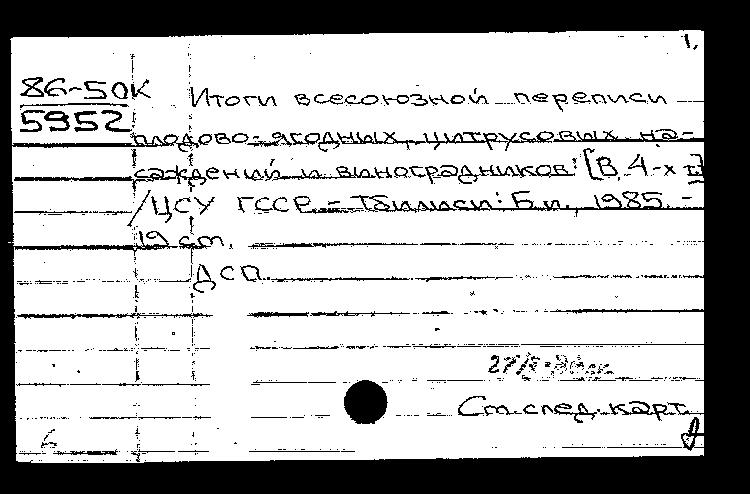 1.
86-50К Итоги всесоюзной переписи
5952 плодово-ягодных, цитрусовых на-
саждений и виноградников: [В 4-х т.]
/ЦСУ ГССР. - Тбилиси: Б.и., 1985. -
19 см.
ДСП.
См. след. карт.
6